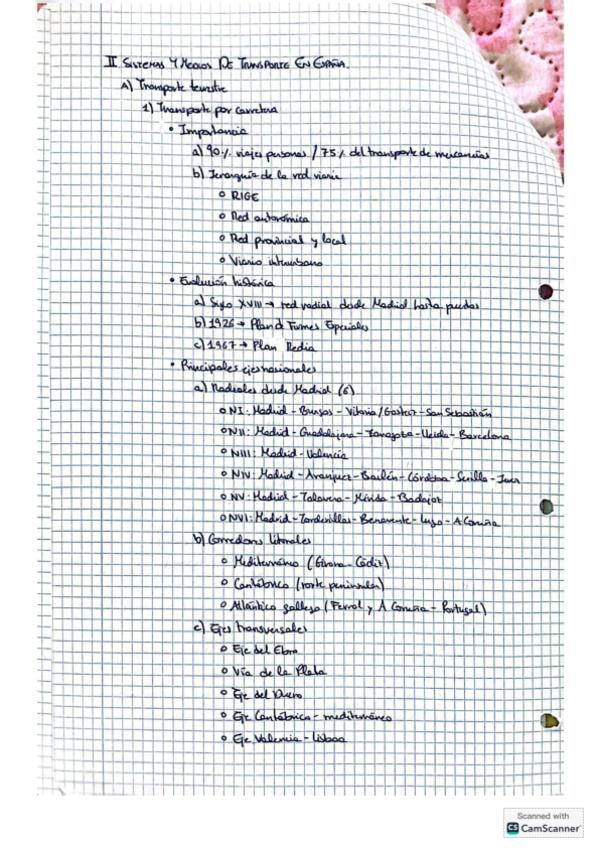 II SISTEMAS Y MEDIOS DE TRANSPORTE EN ESPAÑA.
A) Transporte terrestre
1) Transporte por carretera
• Importancia
a) 90% viajes personas / 75% del transporte de mercancías
b) Jerarquía de la red viaria
o RIGE
o Red autonómica
o Red provincial y local
o Viario interurbano
• Evolución histórica
a) Siglo XVIII → red radial desde Madrid hasta puertos
b) 1926 → Plan d Firmes Especiales
c) 1967 → Plan Redia
• Principales ejes nacionales
a) Radiales desde Madrid (6)
o NI: Madrid - Burgos - Vitoria/Gasteiz - San Sebastián
o NII: Madrid - Guadalajara - Zaragoza - Lleida - Barcelona
o NIII: Madrid - Valencia
o NIV: Madrid - Aranjuez - Bailén - Córdoba - Sevilla -
o NV: Madrid - Talavera - Mérida - Badajoz
o NVI: Madrid - Tordesillas - Benavente - Lugo - A Coruña
b) Corredores litorales
o Mediterráneo (Girona - Cádiz)
o Cantábrico (norte peninsular)
o Atlántico gallego (Ferrol y A Coruña - Portugal)
c) Ejes transversales
o Eje del Ebro
o Vía de la Plata
o Eje del Duero
o Eje Cantábrico - mediterráneo
o Eje Valencia - Lisboa
Scanned with
CS CamScanner